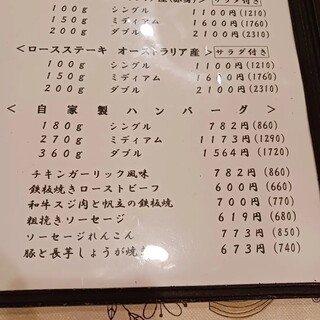 100g シングル 1100円(1210)
150g ミディアム 1600円(1760)
200g ダブル 2100円(2310)
<ロースステーキ オーストラリア産> サラダ付き
100g シングル 1100円(1210)
150g ミディアム 1600円(1760)
200g ダブル 2100円(2310)
<自家製ハンバーグ>
180g シングル 782円(860)
270g ミディアム 1173円(1290)
360g ダブル 1564円(1720)
チキンガーリック風味 782円(860)
鉄板焼きローストビーフ 600円(660)
和牛スジ肉と帆立の鉄板焼 700円(770)
粗挽きソーセージ 619円(680)
ソーセージれんこん 773円(850)
豚と長芋しょうが焼き 673円(740)